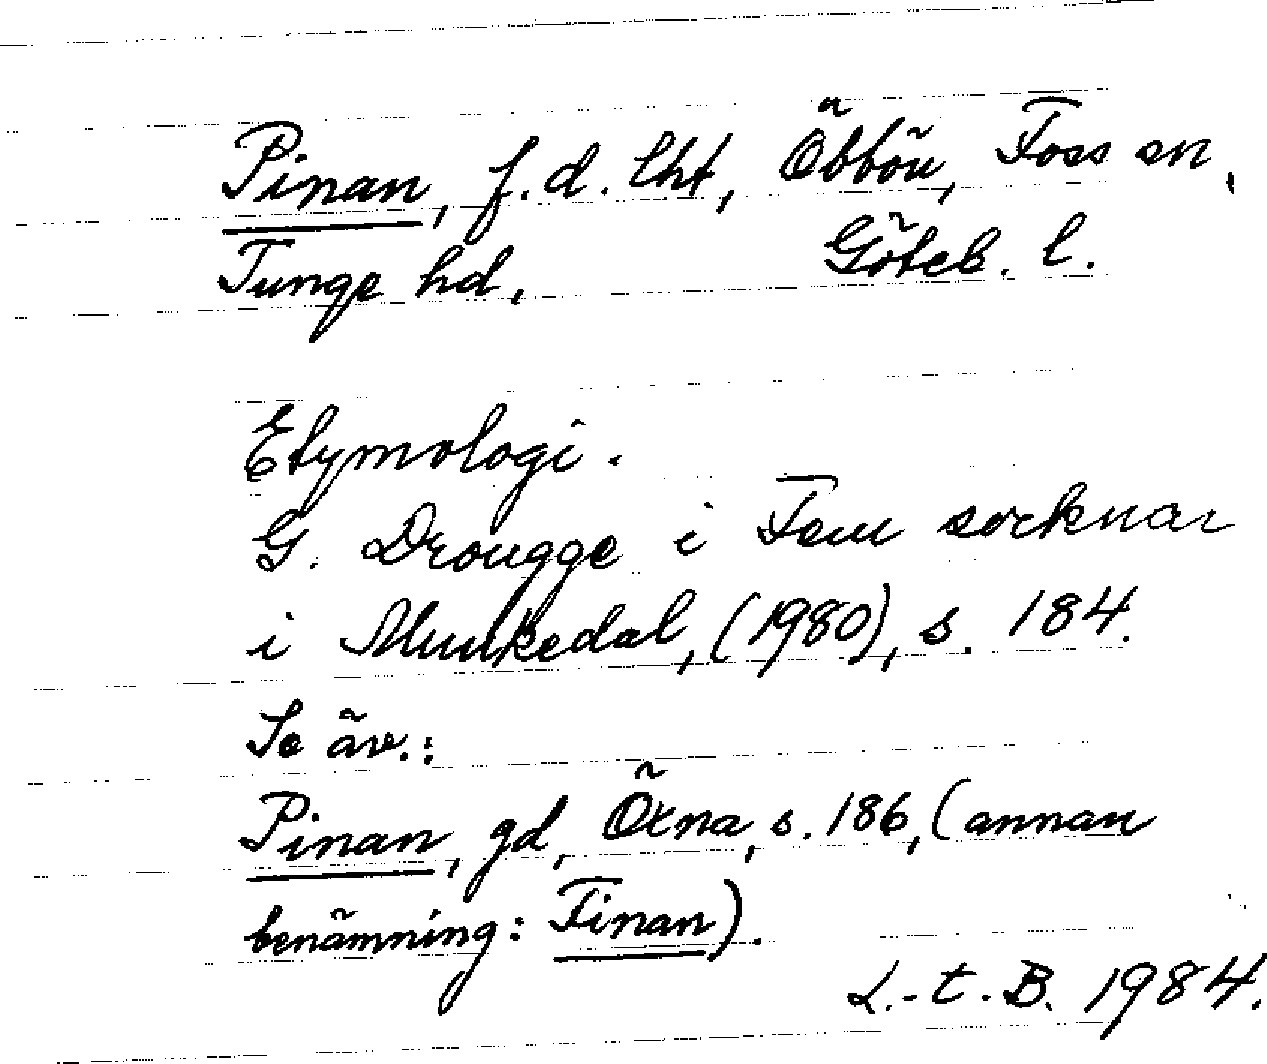 Pinan, f.d. lht, Öbbön, Foss sn,
Tunge hd. Göteb. l.
Etymologi.
G. Drougge i Fem socknar
i Munkedal, (1980), s. 184.
Se äv.:
Pinan, gd, Öxna, s. 186, (annan
benämning: Finan).
L.-t. B. 1984.